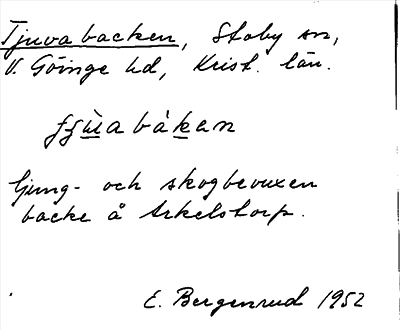 Tjuvabacken, Stoby sn,
V. Göinge hd, Krist. län.
ʃʒùabákan
Ljung- och skogbevuxen
backe å Arkelstorp.
E. Bergenrud 1952